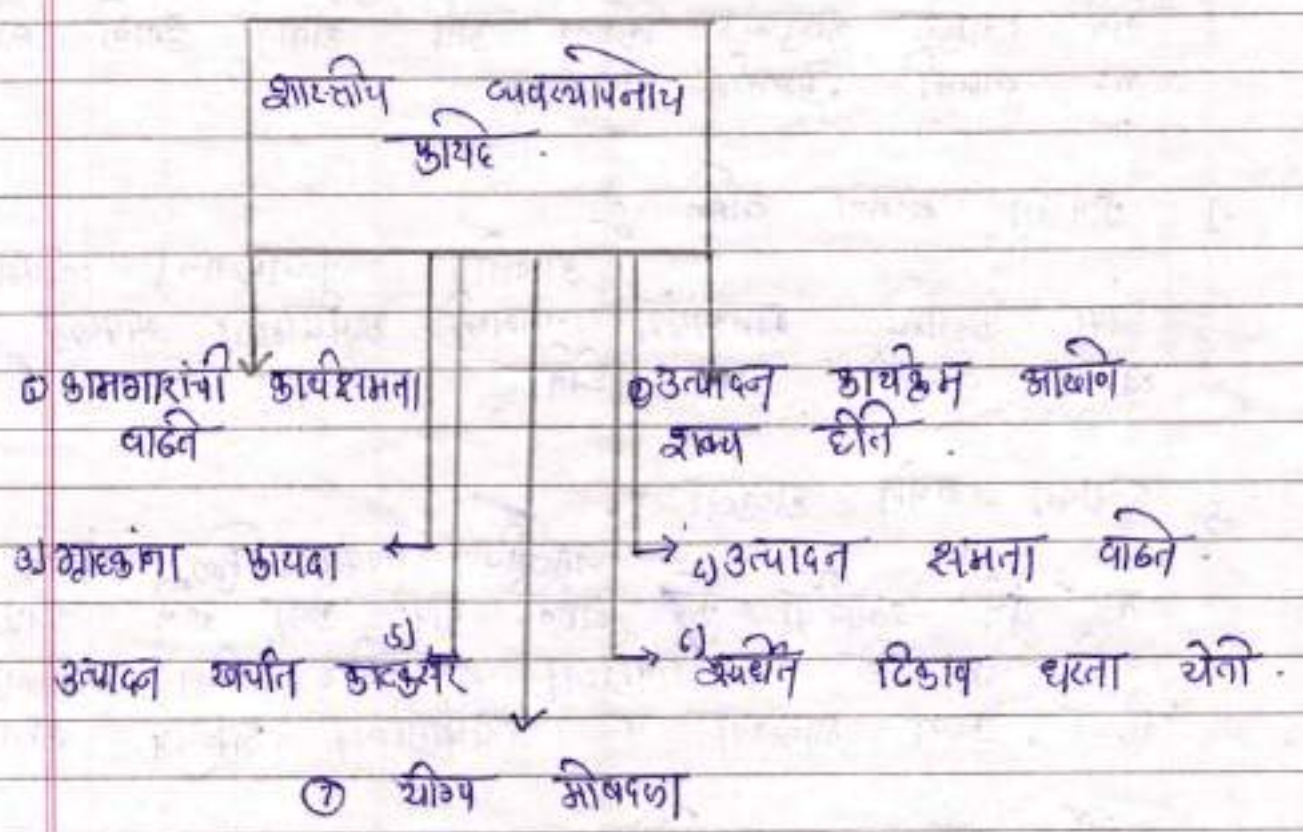 शास्त्रीय व्यवस्थापनाचे
फायदे .
① कामगारांची कार्यक्षमता
वाढते
② उत्पादन कार्यक्रम आखणे
शक्य होते .
३) ग्राहकांना फायदा
४) उत्पादन क्षमता वाढते .
५)
उत्पादन खर्चात काटकसर
६) स्पर्धेत टिकाव धरता येतो .
⑦ योग्य मोबदला